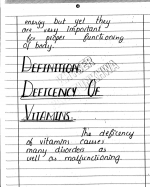 energy but yet they
are very important
for proper functioning
of body.
DEFINITION
DEFICENCY OF
VITAMINS.
The deficency
of vitamin causes
many disorders as
well as malfunctioning.